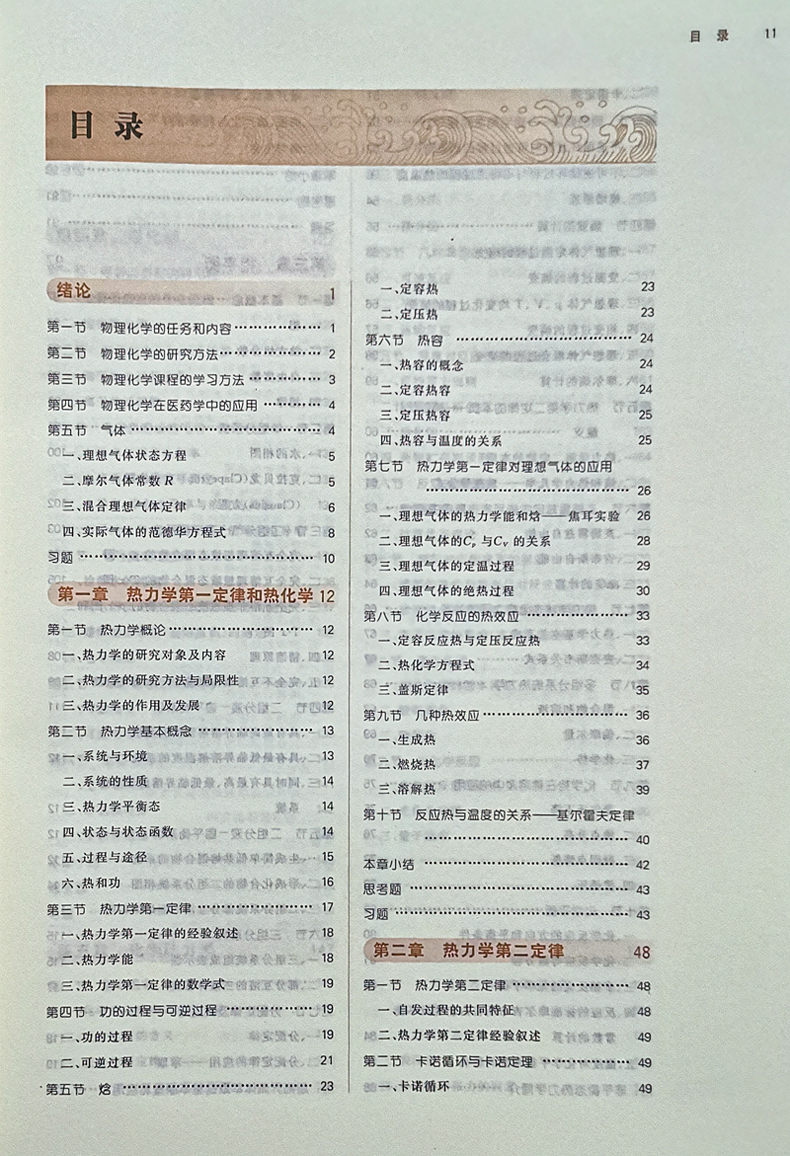 目 录 11
目 录
绪论 1
第一节 物理化学的任务和内容 ………………… 1
第二节 物理化学的研究方法 ………………… 2
第三节 物理化学课程的学习方法 ………………… 3
第四节 物理化学在医药学中的应用 ………………… 4
第五节 气体 ………………… 4
一、理想气体状态方程 5
二、摩尔气体常数 R 5
三、混合理想气体定律 6
四、实际气体的范德华方程式 8
习题 ………………… 10
第一章 热力学第一定律和热化学 12
第一节 热力学概论 ………………… 12
一、热力学的研究对象及内容 12
二、热力学的研究方法与局限性 12
三、热力学的作用及发展 12
第二节 热力学基本概念 ………………… 13
一、系统与环境 13
二、系统的性质 14
三、热力学平衡态 14
四、状态与状态函数 14
五、过程与途径 15
六、热和功 16
第三节 热力学第一定律 ………………… 17
一、热力学第一定律的经验叙述 18
二、热力学能 18
三、热力学第一定律的数学式 19
第四节 功的过程与可逆过程 ………………… 19
一、功的过程 19
二、可逆过程 21
第五节 焓 ………………… 23
一、定容热 23
二、定压热 23
第六节 热容 ………………… 24
一、热容的概念 24
二、定容热容 24
三、定压热容 25
四、热容与温度的关系 25
第七节 热力学第一定律对理想气体的应用
………………… 26
一、理想气体的热力学能和焓——焦耳实验 26
二、理想气体的Cp 与CV 的关系 28
三、理想气体的定温过程 29
四、理想气体的绝热过程 30
第八节 化学反应的热效应 ………………… 33
一、定容反应热与定压反应热 33
二、热化学方程式 34
三、盖斯定律 35
第九节 几种热效应 ………………… 36
一、生成热 36
二、燃烧热 37
三、溶解热 39
第十节 反应热与温度的关系——基尔霍夫定律
………………… 40
本章小结 ………………… 42
思考题 ………………… 43
习题 ………………… 43
第二章 热力学第二定律 48
第一节 热力学第二定律 ………………… 48
一、自发过程的共同特征 48
二、热力学第二定律经验叙述 49
第二节 卡诺循环与卡诺定理 ………………… 49
一、卡诺循环 49